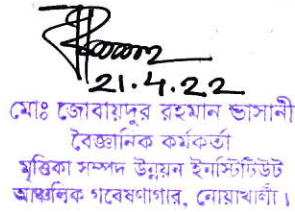 21.4.22
মোঃ জোবায়দুর রহমান ভাসানী
বৈজ্ঞানিক কর্মকর্তা
মৃত্তিকা সম্পদ উন্নয়ন ইনস্টিটিউট
আঞ্চলিক গবেষণাগার, নোয়াখালী।